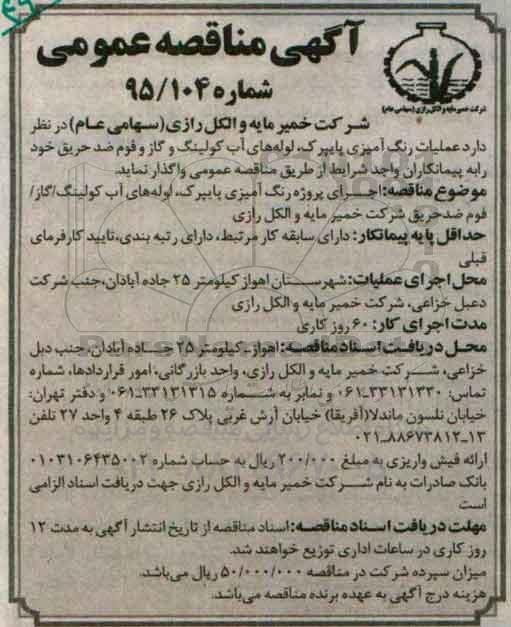 آگهی مناقصه عمومی
شماره ۹۵/۱۰۴
شرکت خمیرمایه و الکل رازی (سهامی عام)
شرکت خمیر مایه و الکل رازی (سهامی عام) در نظر
دارد عملیات رنگ آمیزی پایپرک، لوله‌های آب کولینگ و گاز و فوم ضد حریق خود
را به پیمانکاران واجد شرایط از طریق مناقصه عمومی واگذار نماید.
موضوع مناقصه: اجرای پروژه رنگ آمیزی پایپرک، لوله‌های آب کولینگ/گاز/
فوم ضدحریق شرکت خمیر مایه و الکل رازی
حداقل پایه پیمانکار: دارای سابقه کار مرتبط، دارای رتبه بندی، تایید کارفرمای
قبلی
محل اجرای عملیات: شهرستان اهواز کیلومتر ۲۵ جاده آبادان، جنب شرکت
دعبل خزاعی، شرکت خمیر مایه و الکل رازی
مدت اجرای کار: ۶۰ روز کاری
محل دریافت اسناد مناقصه: اهواز- کیلومتر ۲۵ جاده آبادان، جنب دبل
خزاعی، شرکت خمیر مایه و الکل رازی، واحد بازرگانی، امور قراردادها، شماره
تماس: ۳۳۱۳۱۳۳۰-۰۶۱ و نمابر به شماره ۳۳۱۳۱۳۱۵-۰۶۱ و دفتر تهران:
خیابان نلسون ماندلا(آفریقا) خیابان آرش غربی پلاک ۲۶ طبقه ۴ واحد ۲۷ تلفن
۱۳-۸۸۶۷۳۸۱۲-۰۲۱
ارائه فیش واریزی به مبلغ ۲۰۰/۰۰۰ ریال به حساب شماره ۰۱۰۳۱۰۶۴۳۵۰۰۲
بانک صادرات به نام شرکت خمیر مایه و الکل رازی جهت دریافت اسناد الزامی
است
مهلت دریافت اسناد مناقصه: اسناد مناقصه از تاریخ انتشار آگهی به مدت ۱۲
روز کاری در ساعات اداری توزیع خواهند شد.
میزان سپرده شرکت در مناقصه ۵۰/۰۰۰/۰۰۰ ریال می‌باشد.
هزینه درج آگهی به عهده برنده مناقصه می‌باشد.